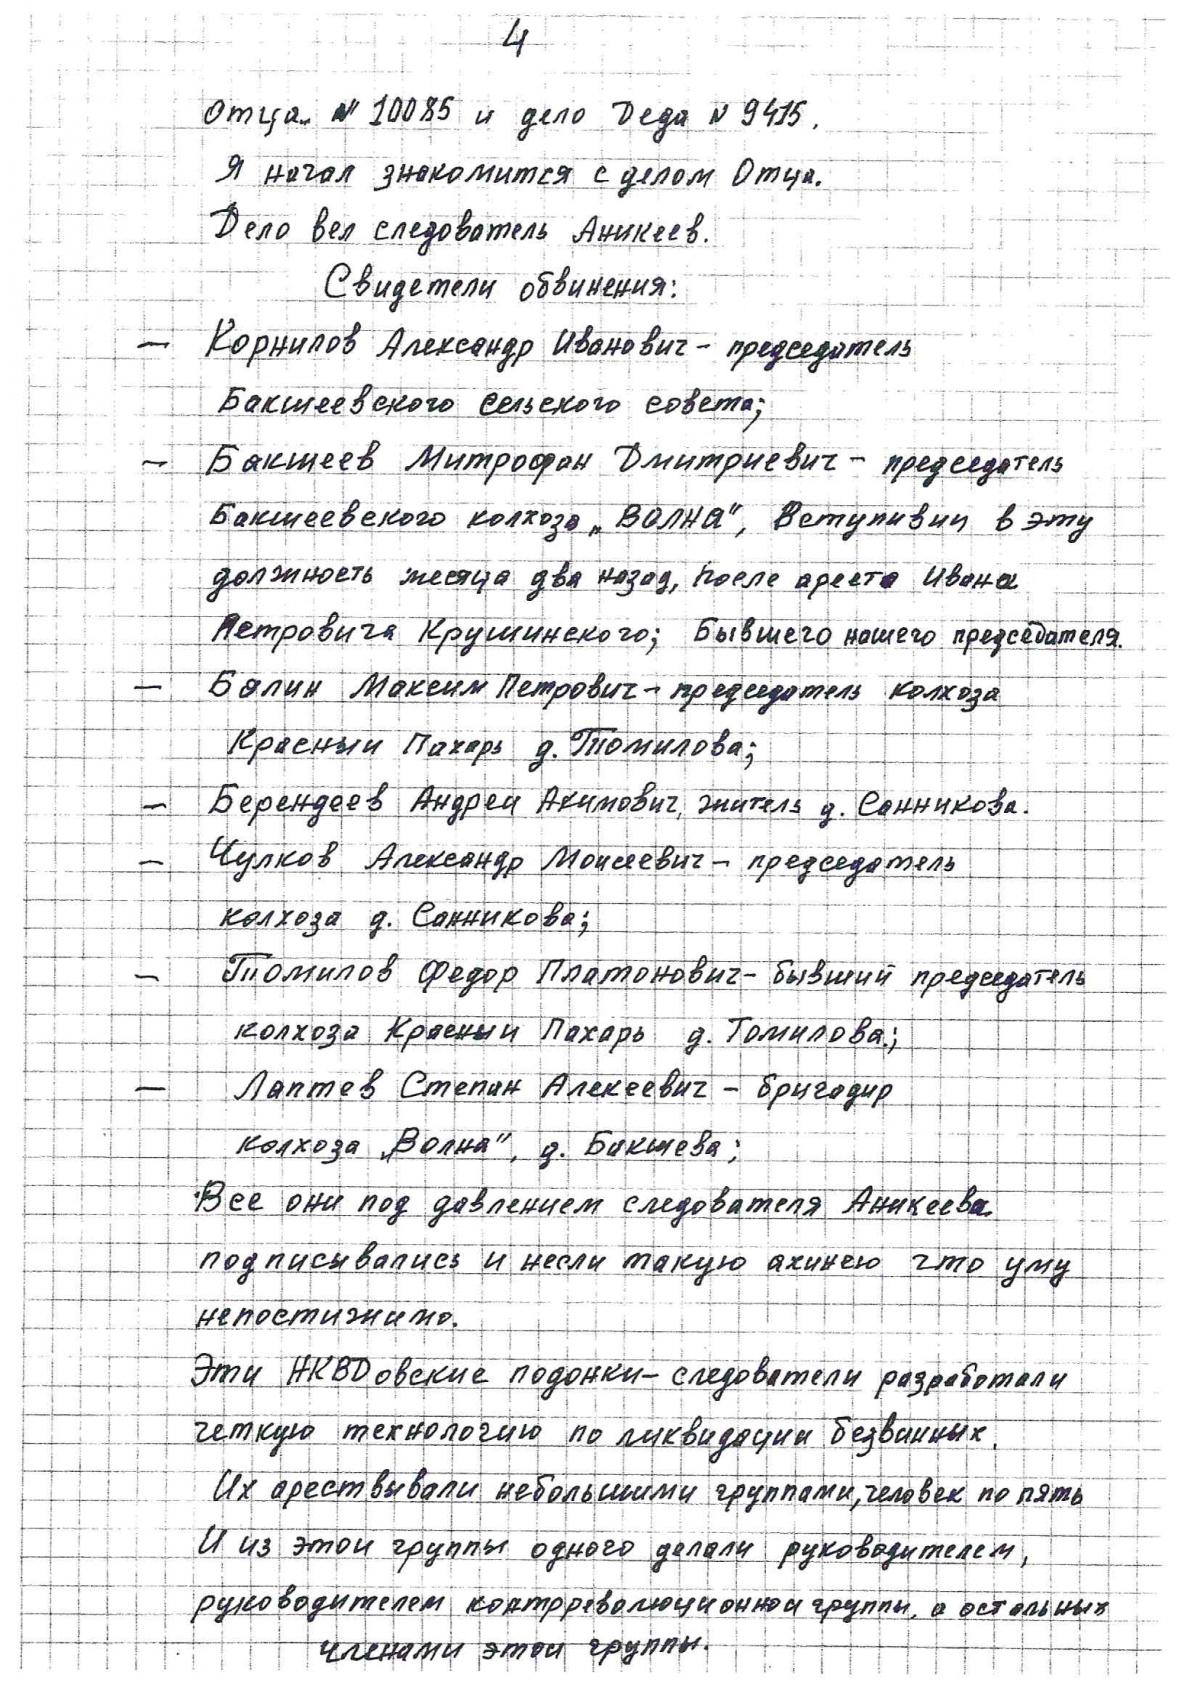 4
Отца. № 10085 и дело Деда № 9415.
Я начал знакомится с делом Отца.
Дело вел следователь Аникеев.
Свидетели обвинения:
— Корнилов Александр Иванович - председатель
Бакшеевского сельского совета;
— Бакшеев Митрофан Дмитриевич - председатель
Бакшеевского колхоза „ВОЛНА", Вступивии в эту
должность месяца два назад, после ареста Ивана
Петровича Крушинского; Бывшего нашего председателя.
— Балин Максим Петрович - председатель колхоза
Красныи Пахарь д. Томилова;
— Берендеев Андреи Акимович, житель д. Санникова.
— Чулков Александр Моисеевич - председатель
колхоза д. Санникова;
— Томилов Федор Платонович - бывший председатель
колхоза Красныи Пахарь д. Томилова.;
— Лаптев Степан Алексеевич - бригадир
колхоза „Волна", д. Бакшева;
Все они под давлением следователя Аникеева
подписывались и несли такую ахинею что уму
непостижимо.
Эти НКВДовские подонки - следователи разработали
четкую технологию по ликвидации безвинных.
Их арествывали небольшими группами, человек по пять
И из этои группы одного делали руководителем,
руководителем контрреволюционнои группы, а остальных
членами этои группы.